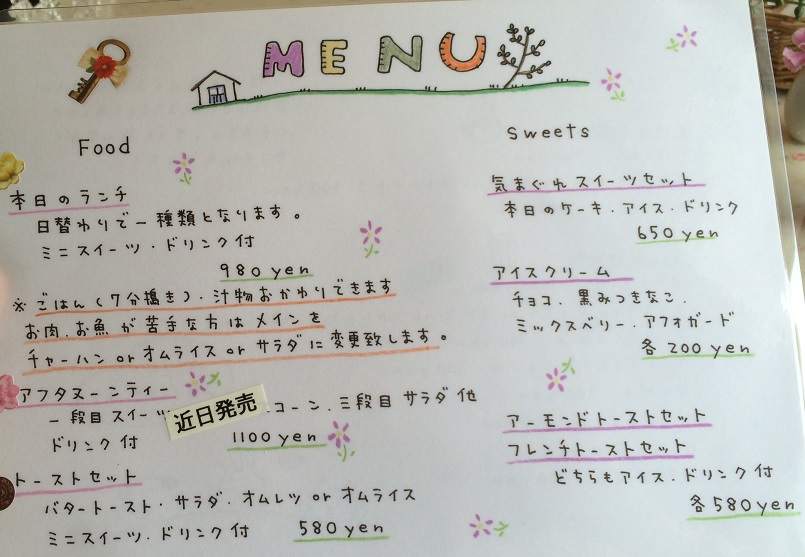 MENU
Food
本日のランチ
日替わりで一種類となります。
ミニスイーツ・ドリンク付
980yen
※ごはん(7分搗き)・汁物おかわりできます
お肉.お魚が苦手な方はメインを
チャーハンorオムライスorサラダに変更致します。
アフタヌーンティー
一段目スイーツ コーン.三段目サラダ他
近日発売
ドリンク付
1100yen
トーストセット
バタートースト・サラダ.オムレツorオムライス
ミニスイーツ・ドリンク付 580yen
Sweets
気まぐれスイーツセット
本日のケーキ・アイス・ドリンク
650yen
アイスクリーム
チョコ.黒みつきなこ.
ミックスベリー・アフォガード
各200yen
アーモンドトーストセット
フレンチトーストセット
どちらもアイス.ドリンク付
各580yen